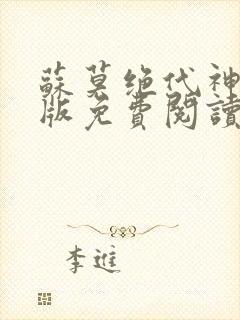 蘇莫绝代神
版免費閱讀
李進